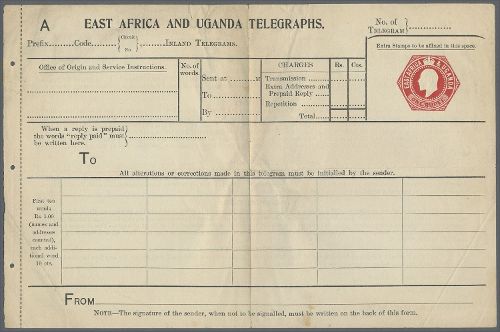 A
EAST AFRICA AND UGANDA TELEGRAPHS.
No. of
TELEGRAM
Prefix..........Code..........
No
INLAND TELEGRAMS.
Extra Stamps to be affixed in this space.
Office of Origin and Service Instructions.
No. of
words.
Sent at
M
To
By
CHARGES
Rs.
Cts.
Transmission
Extra Addresses and
Prepaid Reply
Repetition
Total
EAST AFRICA & UGANDA
When a reply is prepaid
the words "reply paid" must
be written here.
TO
All alterations or corrections made in this telegram must be initialled by the sender.
First two
words
Rs 1.00
(names and
addresses
counted),
each addi-
tional word
10 cts.
FROM
NOTE—The signature of the sender, when not to be signalled, must be written on the back of this form.